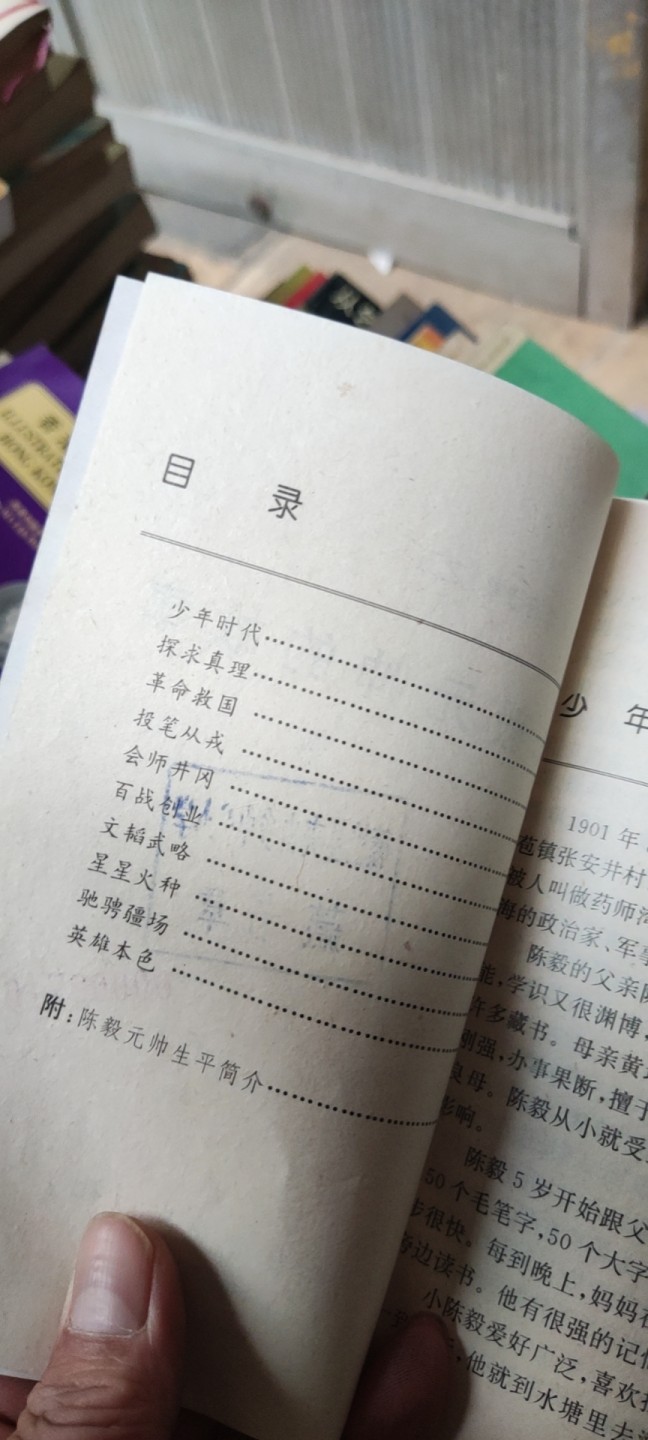 目 录
少年时代
探求真理
革命救国
投笔从戎
会师井冈
百战创业
文韬武略
星星火种
驰骋疆场
英雄本色
附：陈毅元帅生平简介
少 年
1901 年
苞镇张安井村
被人叫做药师
海的政治家、军事
陈毅的父亲陈
能，学识又很渊博，
许多藏书。母亲黄
刚强，办事果断，擅于
良母。陈毅从小就受
影响。
陈毅 5 岁开始跟父
50 个毛笔字，50 个大字
步很快。每到晚上，妈妈在
旁边读书。他有很强的记忆
小陈毅爱好广泛，喜欢
他就到水塘里去
ILLUSTRATE
HONG KO